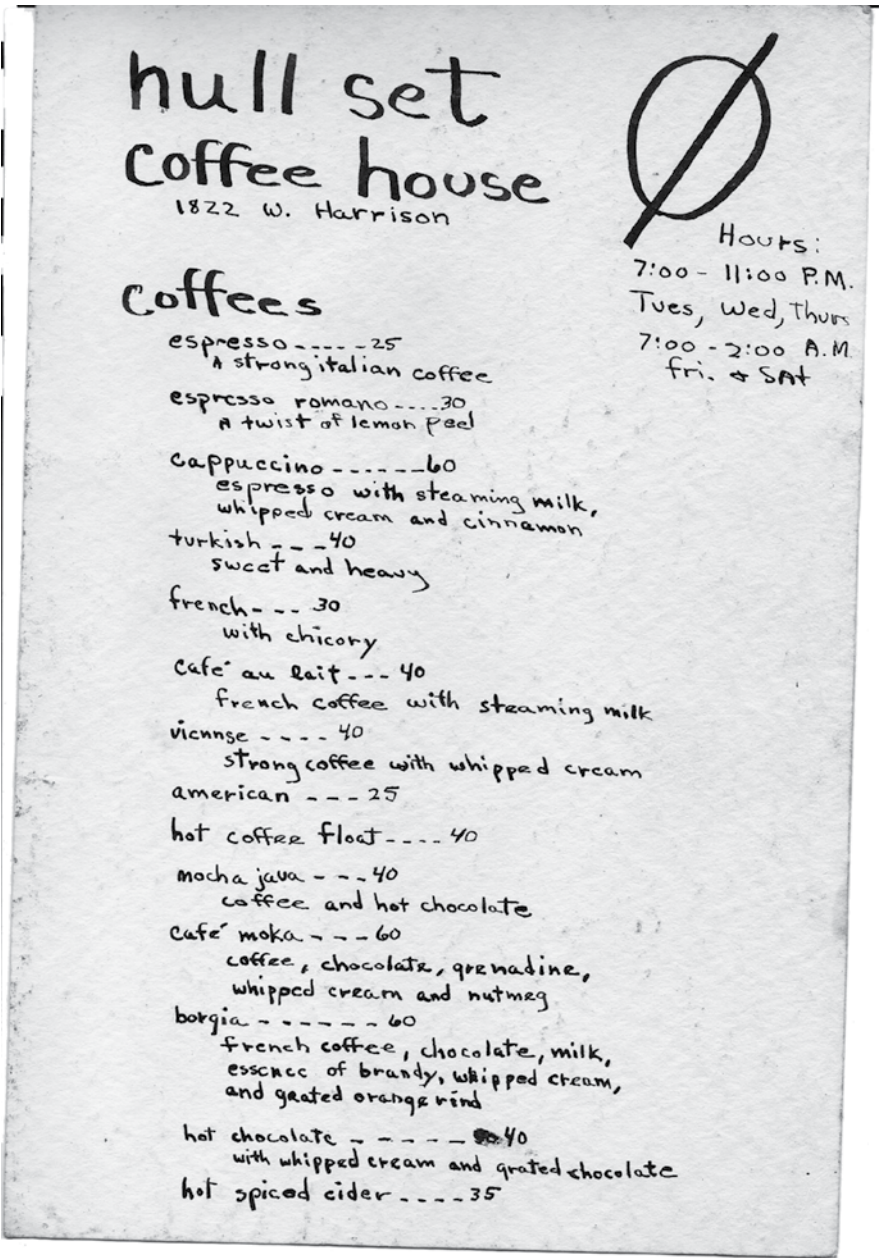 null set
coffee house
1822 W. Harrison
Ø
Hours:
7:00 - 11:00 P.M.
Tues, Wed, Thurs
7:00 - 2:00 A.M.
fri. & SAt
coffees
espresso ----- 25
A strong italian coffee
espresso romano .... 30
A twist of lemon peel
cappuccino ------ 60
espresso with steaming milk,
whipped cream and cinnamon
turkish --- 40
sweet and heavy
french --- 30
with chicory
café au lait --- 40
french coffee with steaming milk
viennse ---- 40
strong coffee with whipped cream
american --- 25
hot coffee float ---- 40
mocha java --- 40
coffee and hot chocolate
café moka --- 60
coffee, chocolate, grenadine,
whipped cream and nutmeg
borgia ------ 60
french coffee, chocolate, milk,
essence of brandy, whipped cream,
and grated orange rind
hot chocolate ----- 40
with whipped cream and grated chocolate
hot spiced cider ---- 35